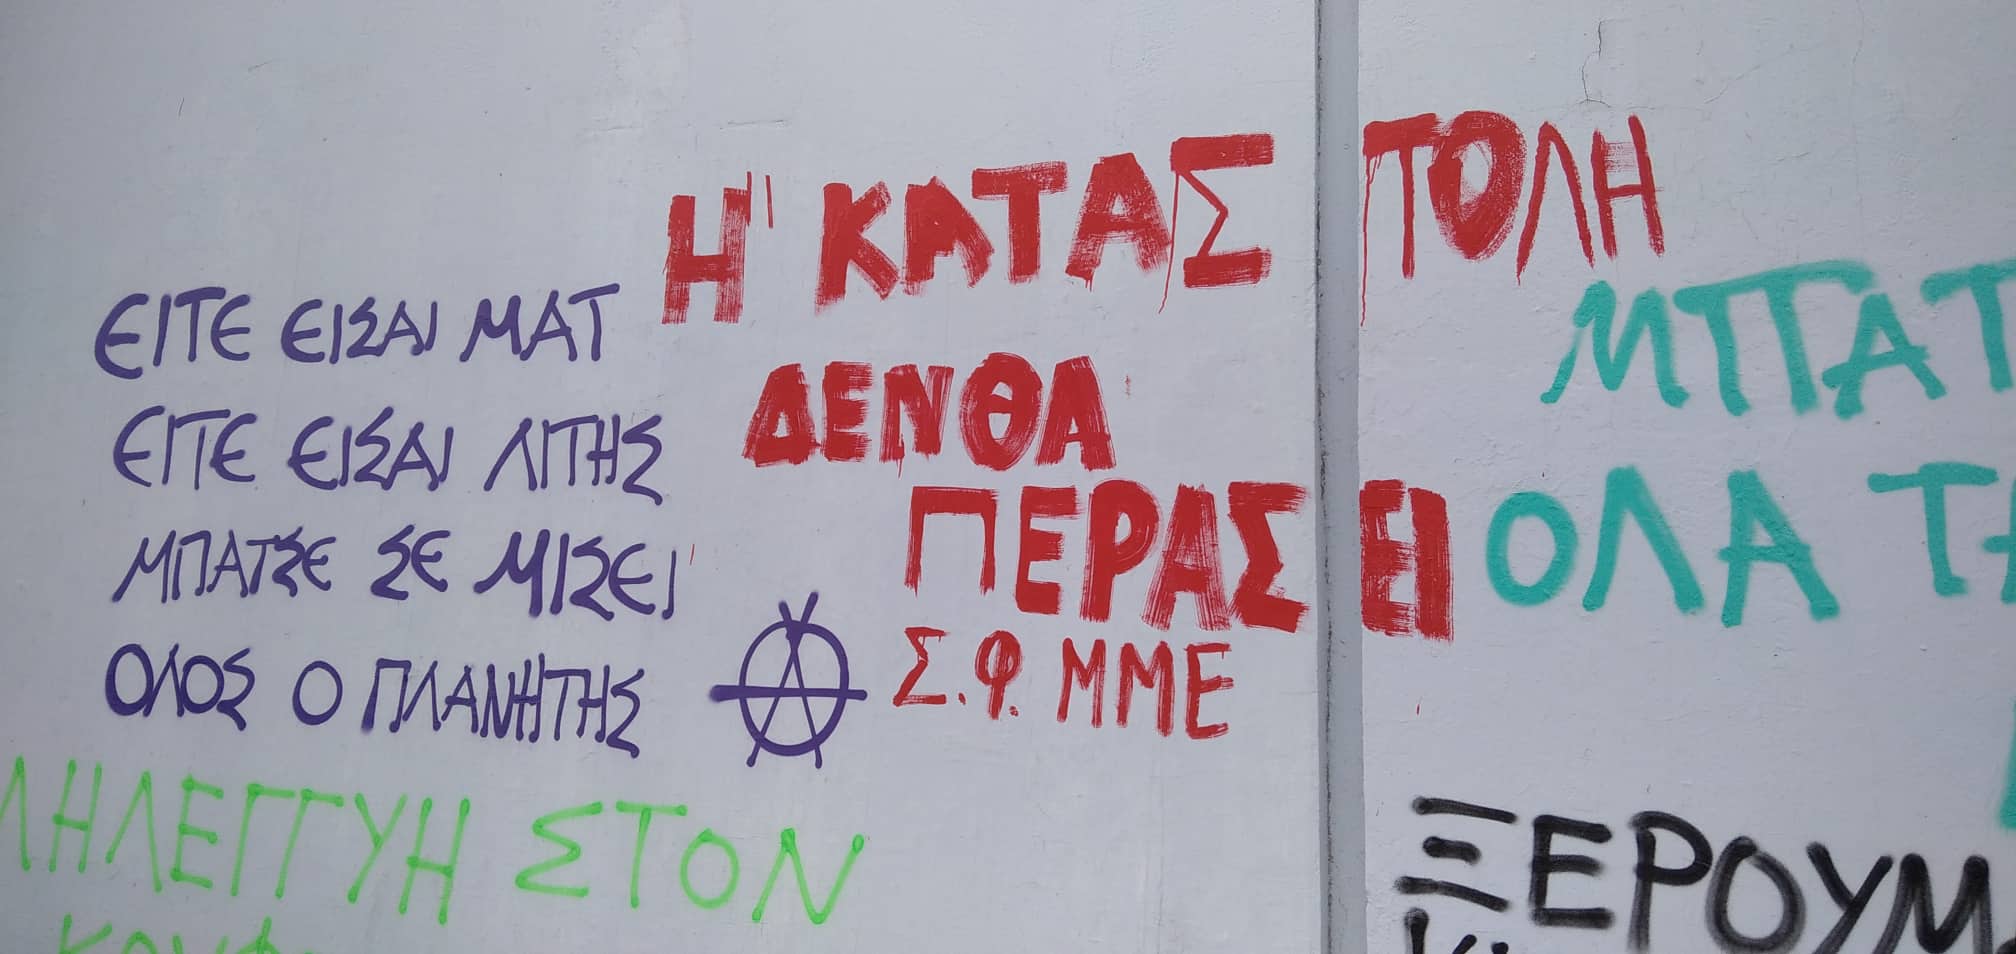 ΕΙΤΕ ΕΙΣΑΙ ΜΑΤ
ΕΙΤΕ ΕΙΣΑΙ ΛΙΤΗΣ
ΜΠΑΤΣΕ ΣΕ ΜΙΣΕΙ
ΟΛΟΣ Ο ΠΛΑΝΗΤΗΣ
Η ΚΑΤΑΣΤΟΛΗ
ΔΕΝ ΘΑ
ΠΕΡΑΣΕΙ
Σ.Φ. ΜΜΕ
ΜΠΑΤ
ΟΛΑ ΤΑ
ΛΗΛΕΓΓΥΗ ΣΤΟΝ
ΞΕΡΟΥΜ